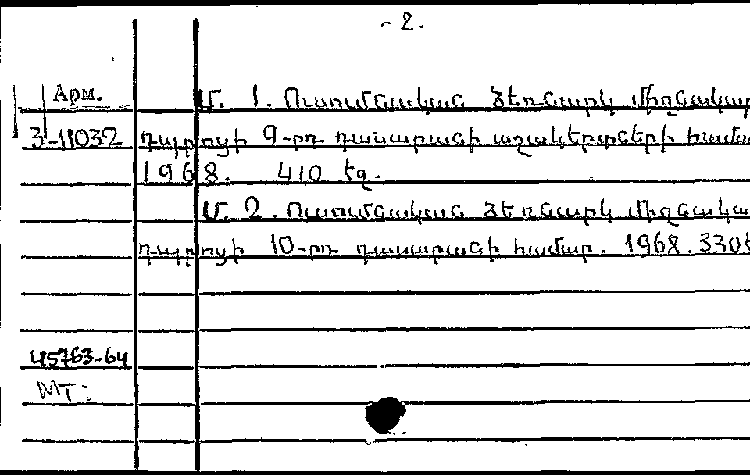 - 2.
Арм.
Մ. 1. Ուսումնական ձեռնարկ միջնակար
3-11032 դպրոցի 9-րդ դասարանի աշակերտների համա
1968. 410 էջ.
Մ. 2. Ուսումնական ձեռնարկ միջնակա
դպրոցի 10-րդ դասարանի համար. 1968. 330է
45763-64
МТ: